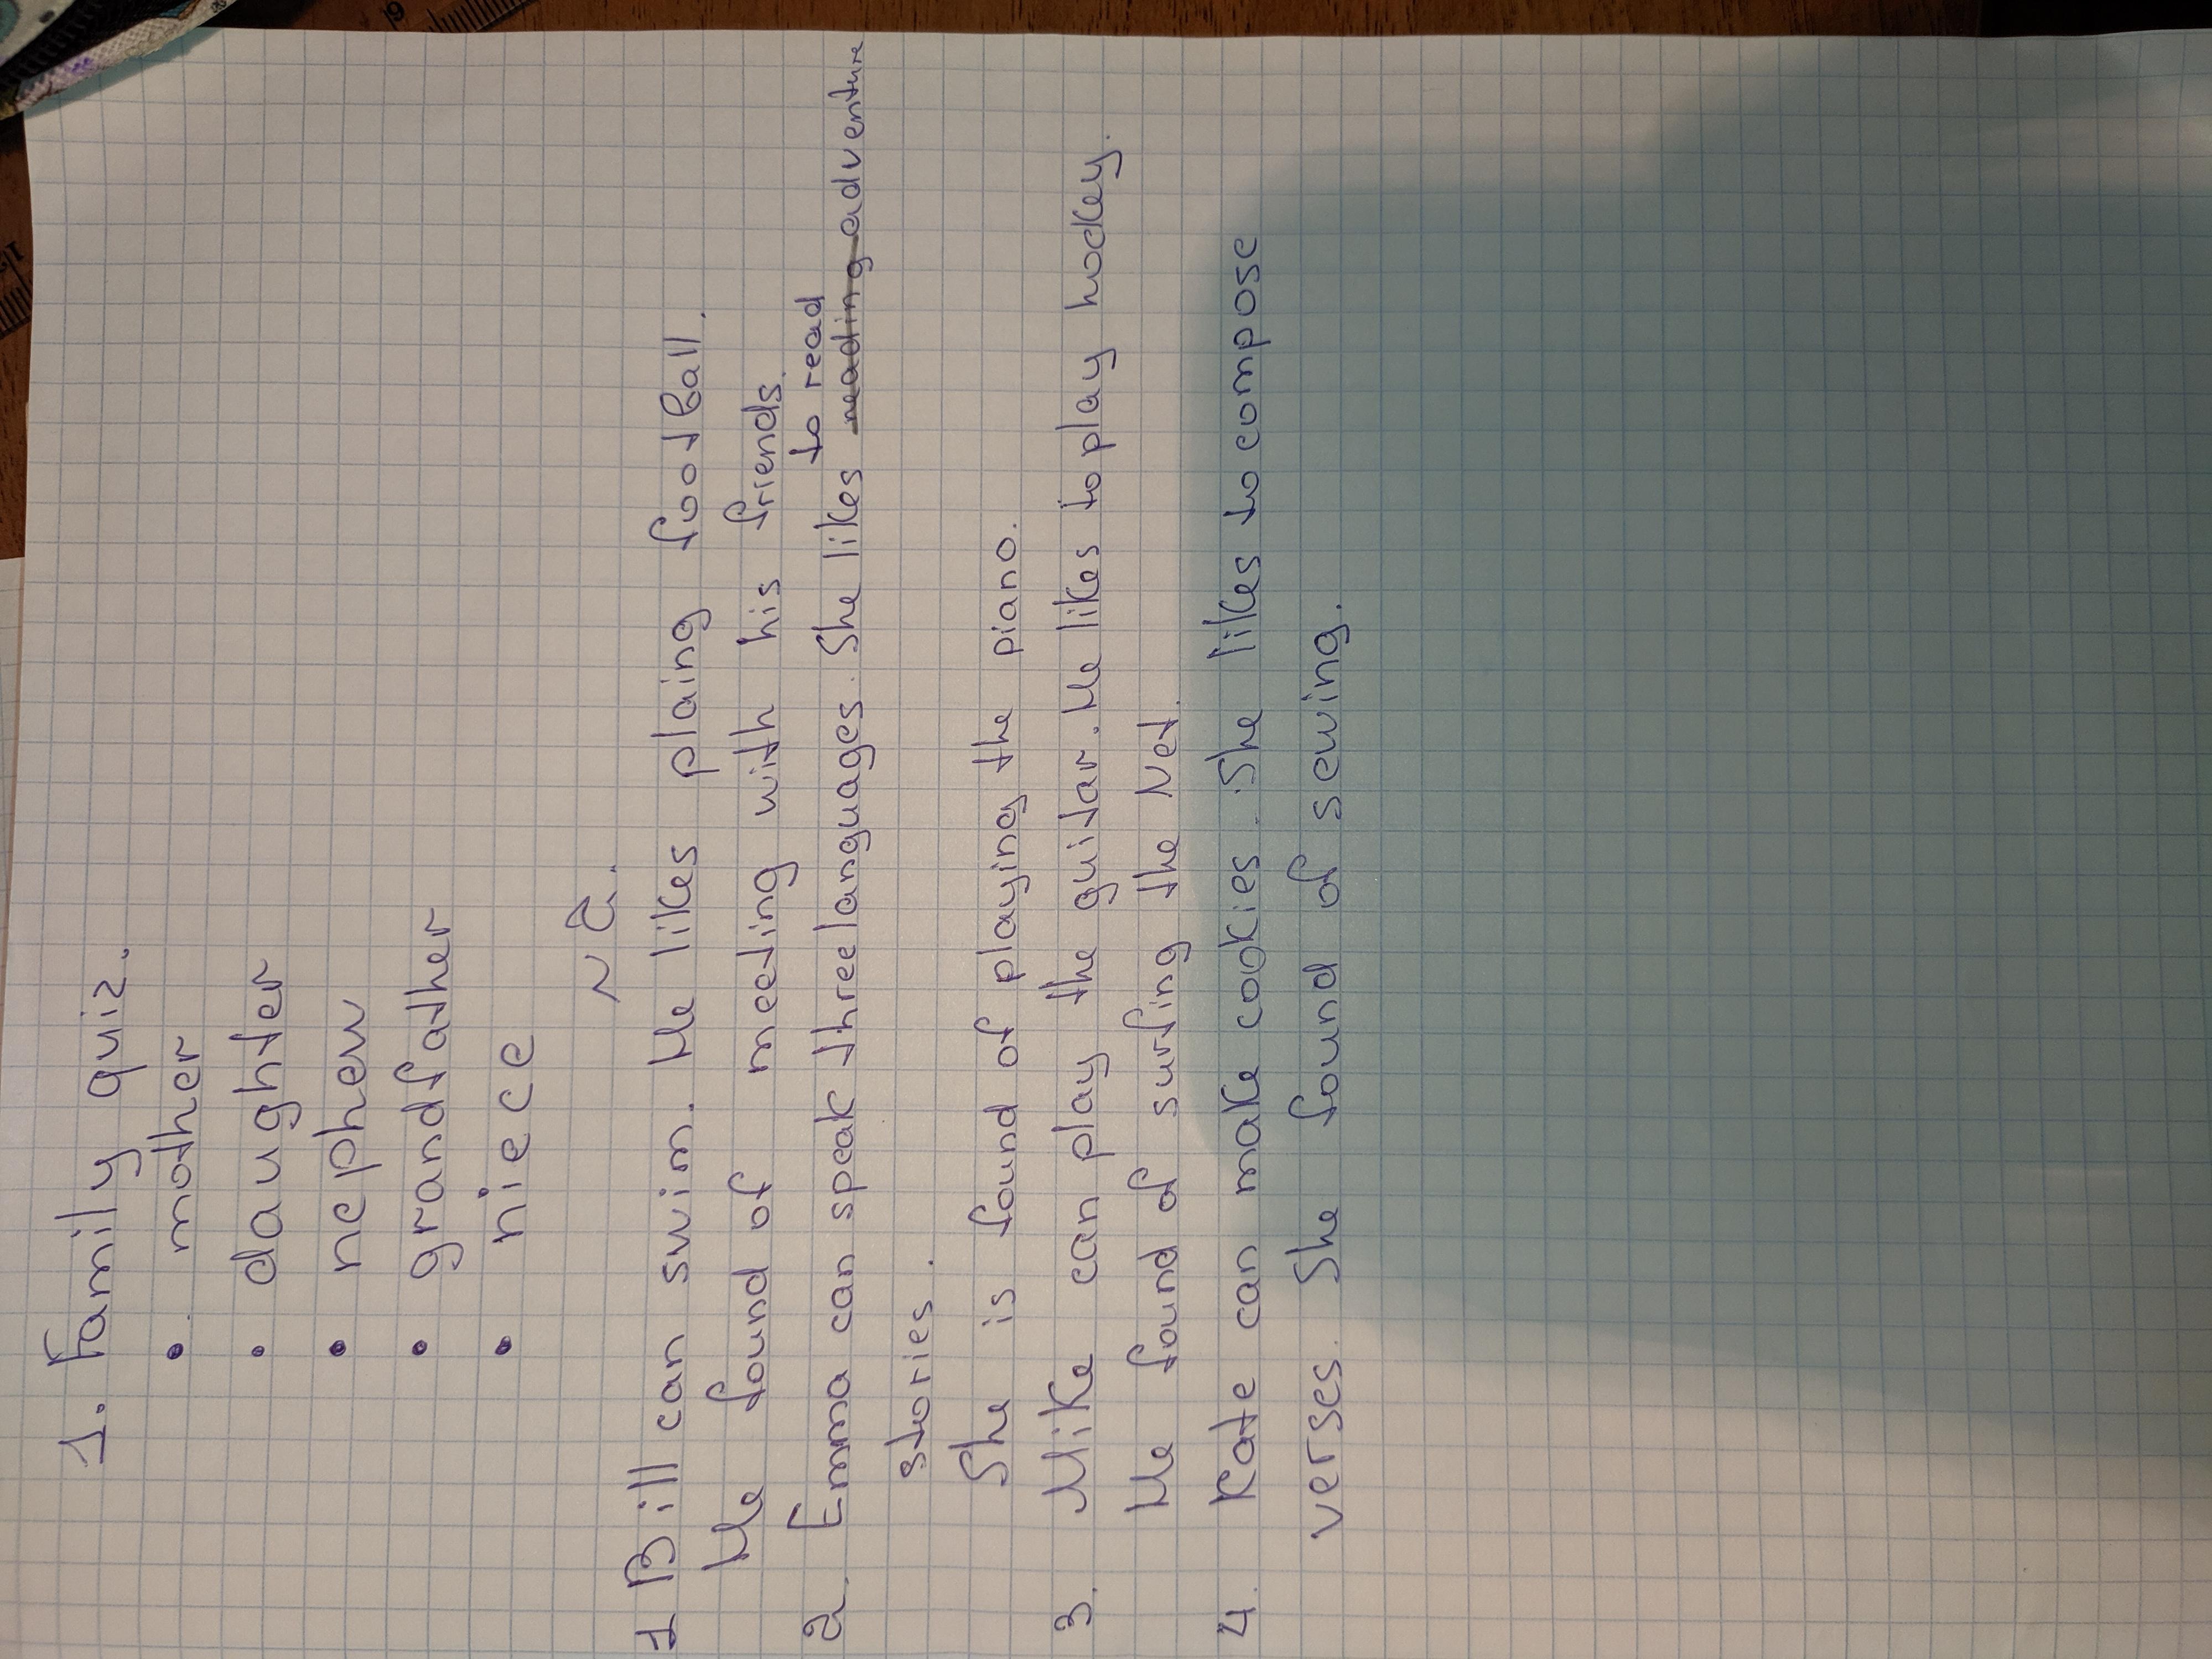 1. Family quiz.
• mother
• daughter
• nephew
• grandfather
• niece
~ 2.
1 Bill can swim. He likes plaing football.
He found of meeting with his friends.
to read
2. Emma can speak three languages. She likes reading adventure
stories.
She is found of playing the piano.
3. Mike can play the guitar. He likes to play hockey.
He found of surfing the Net.
4. Kate can make cookies. She likes to compose
verses. She found of sewing.